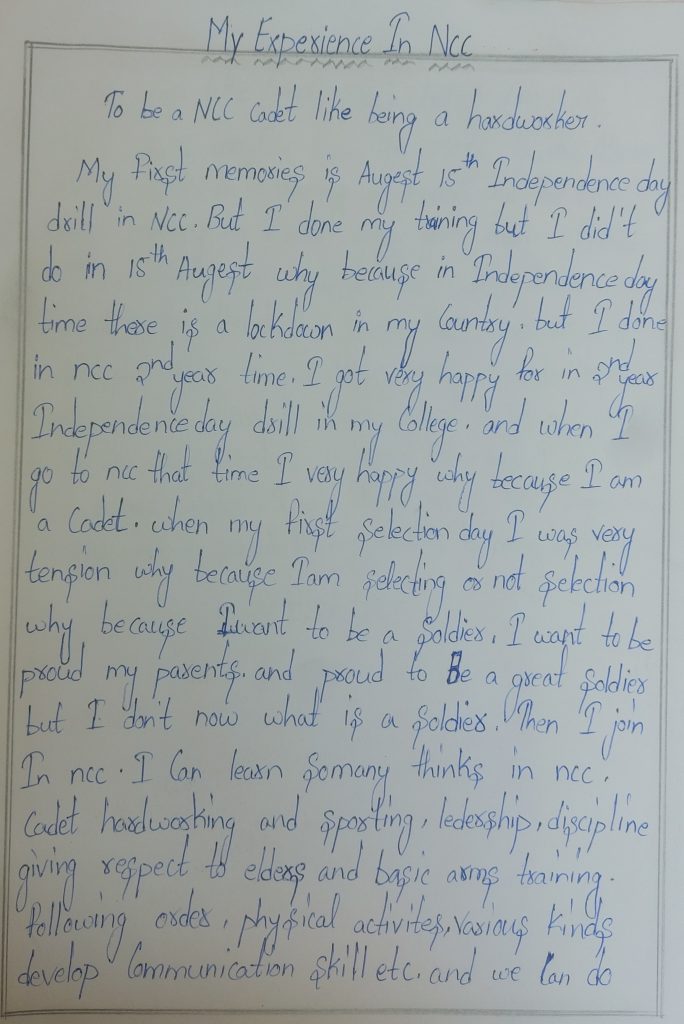 My Experience In Ncc
To be a NCC Cadet like being a hardworker.
My First memories is Augest 15th Independence day
drill in NCC. But I done my traning but I didn't
do in 15th Augest why because in Independence day
time there is a lockdown in my Country. but I done
in ncc 2nd year time. I got very happy for in 2nd year
Independence day drill in my College. and when I
go to ncc that time I very happy why because I am
a Cadet. when my first selection day I was very
tension why because I am selecting or not selection
why because I want to be a Soldier. I want to be
proud my parents. and proud to Be a great Soldier
but I don't now what is a Soldier. Then I join
In ncc. I Can learn Somany thinks in ncc.
Cadet hardworking and sporting, ledership, discipline
giving respect to elders and basic arms training.
Following order, physical activites, various kinds
develop Communication skill etc. and we Can do